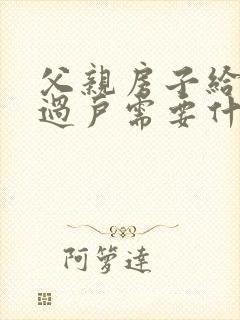 父親房子給
過戶需要什
阿箩達